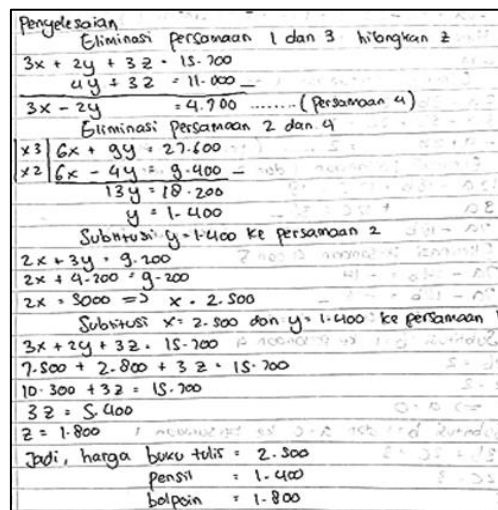 Penyelesaian
Eliminasi persamaan 1 dan 3 hilangkan z
3x + 2y + 3z = 15.700
4y + 3z = 11.000 –
3x – 2y = 4.700 ........ (persamaan 4)
Eliminasi Persamaan 2 dan 4
x3 | 6x + 9y = 27.600
x2 | 6x – 4y = 9.400 –
13y = 18.200
y = 1.400
Subtitusi y = 1.400 ke persamaan 2
2x + 3y = 9.200
2x + 4.200 = 9.200
2x = 5000 => x = 2.500
Subtitusi x = 2.500 dan y = 1.400 ke persamaan 1
3x + 2y + 3z = 15.700
7.500 + 2.800 + 3z = 15.700
10.300 + 3z = 15.700
3z = 5.400
z = 1.800
Jadi, harga buku tulis = 2.500
pensil = 1.400
bolpoin = 1.800